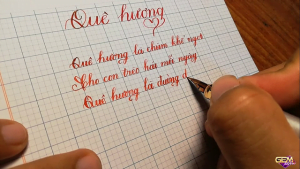 Quê hương
Quê hương là chùm khế ngọt
Cho con trèo hái mỗi ngày
Quê hương là đường đ
GEM